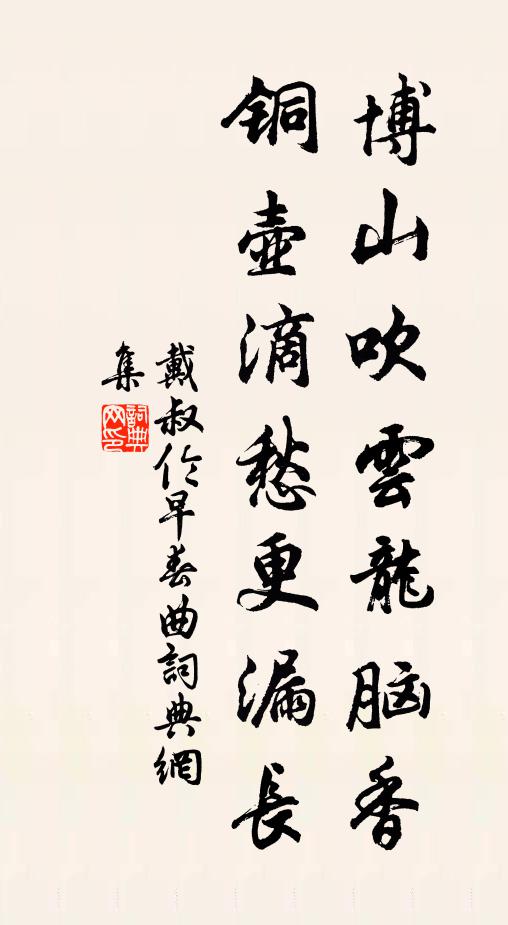 博山吹雲龍脑香
铜壺滴愁更漏長
戴叔伦早春曲詞典網
集
詞典
网印